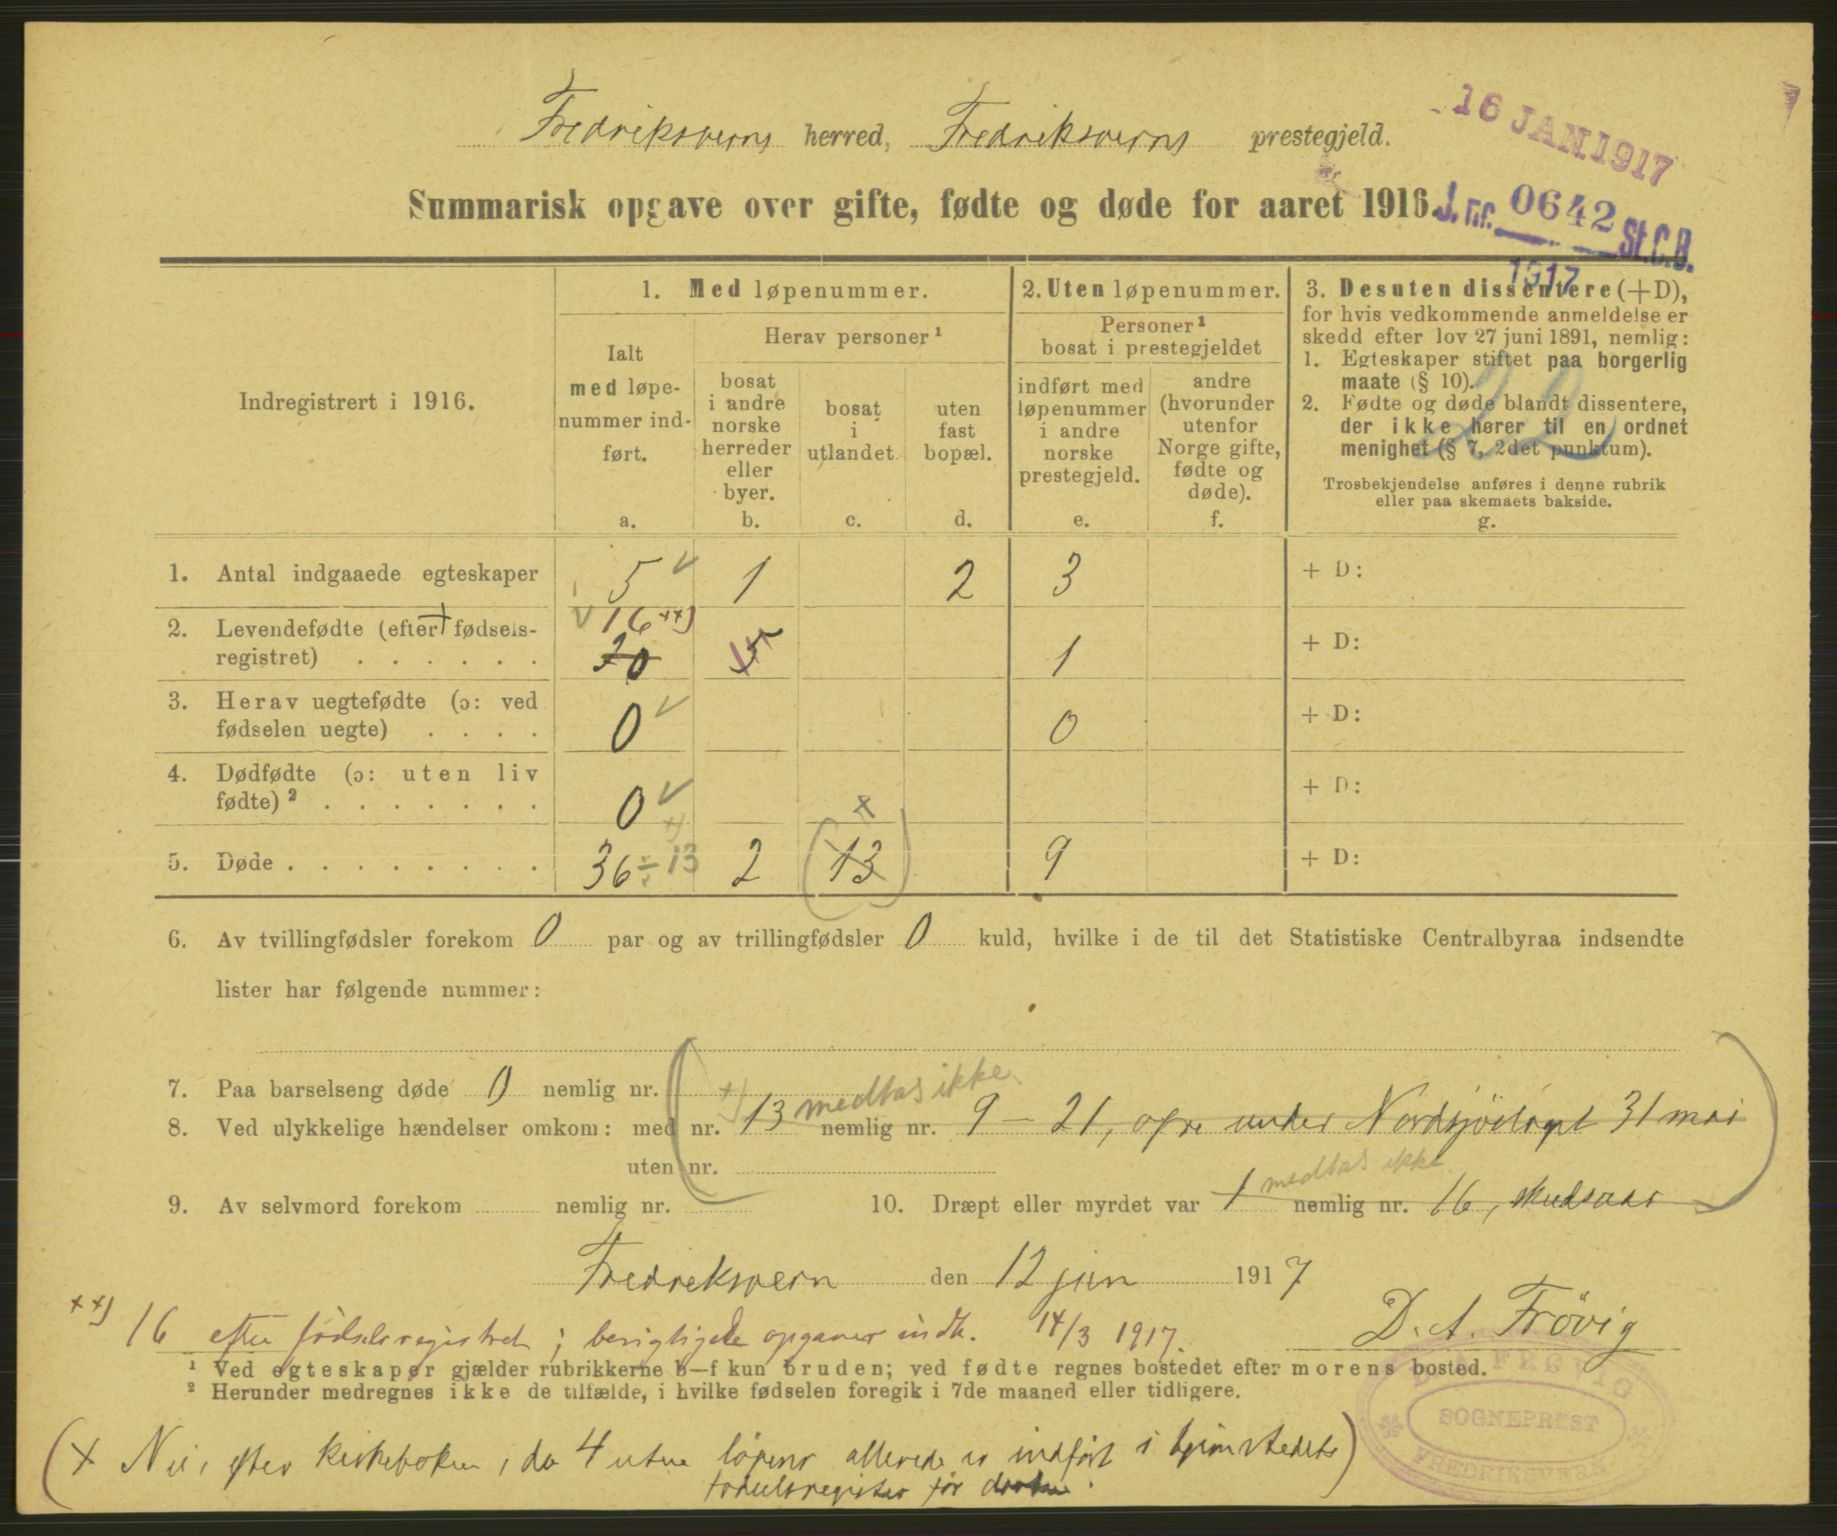 Fredriksverns herred, Fredriksverns prestegjeld.
16 JAN 1917
Summarisk opgave over gifte, fødte og døde for aaret 1916.
J. nr. 0642 St.C.B.
1917
Indregistrert i 1916.
1. Med løpenummer.
Ialt
med løpe-
nummer ind-
ført.
a.
Herav personer¹
bosat
i andre
norske
herreder
eller
byer.
b.
bosat
i
utlandet
c.
uten
fast
bopæl.
d.
2. Uten løpenummer.
Personer¹
bosat i prestegjeldet
indført med
løpenummer
i andre
norske
prestegjeld.
e.
andre
(hvorunder
utenfor
Norge gifte,
fødte og
døde).
f.
3. Desuten dissentere (+D),
for hvis vedkommende anmeldelse er
skedd efter lov 27 juni 1891, nemlig:
1. Egteskaper stiftet paa borgerlig
maate (§ 10).
2. Fødte og døde blandt dissentere,
der ikke hører til en ordnet
menighet (§ 7, 2det punktum).
22
Trosbekjendelse anføres i denne rubrik
eller paa skemaets bakside.
g.
1. Antal indgaaede egteskaper 5 1 2 3 + D:
2. Levendefødte (efter fødsels- 16 ××)
registret) . . . . . . 20 5 1 + D:
3. Herav uegtefødte (ɔ: ved
fødselen uegte) . . . . 0 0 + D:
4. Dødfødte (ɔ: uten liv
fødte)² . . . . . . . 0 + D:
5. Døde . . . . . . . . 36 ÷ 13 2 (13) 9 + D:
6. Av tvillingfødsler forekom 0 par og av trillingfødsler 0 kuld, hvilke i de til det Statistiske Centralbyraa indsendte
lister har følgende nummer:
7. Paa barselseng døde 0 nemlig nr.
medtas ikke
8. Ved ulykkelige hændelser omkom: med nr. 13 nemlig nr. 9 – 21, ofre under Nordsjöslaget 31 mai
uten nr.
medtas ikke
9. Av selvmord forekom nemlig nr. 10. Dræpt eller myrdet var 1 nemlig nr. 16, skudsaar
Fredreksvern den 12 jan 1917
D. A. Frövig
××) 16 efter fødselsregistret; berigtigede opgaver indk. 14/3 1917.
¹ Ved egteskaper gjælder rubrikkerne b–f kun bruden; ved fødte regnes bostedet efter morens bosted.
² Herunder medregnes ikke de tilfælde, i hvilke fødselen foregik i 7de maaned eller tidligere.
SOGNEPREST
FREDRIKSVERN
(× efter kirkeboken, da 4 uten löpenr allerede er indført i hjemstedets)
for